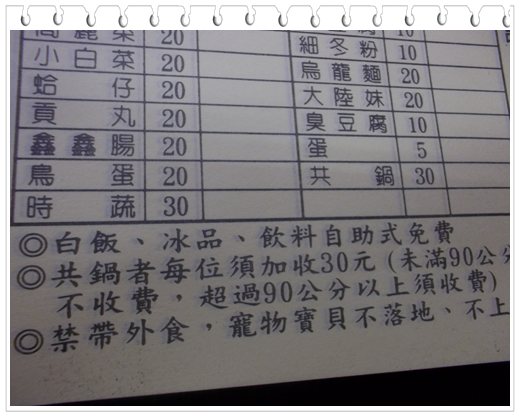 高麗菜 20
小白菜 20
蛤仔 20
貢丸 20
鑫鑫腸 20
鳥蛋 20
時蔬 30
10
細冬粉 10
烏龍麵 20
大陸妹 20
臭豆腐 10
蛋 5
共鍋 30
◎白飯、冰品、飲料自助式免費
◎共鍋者每位須加收30元(未滿90公分
不收費，超過90公分以上須收費)
◎禁帶外食，寵物寶貝不落地、不上